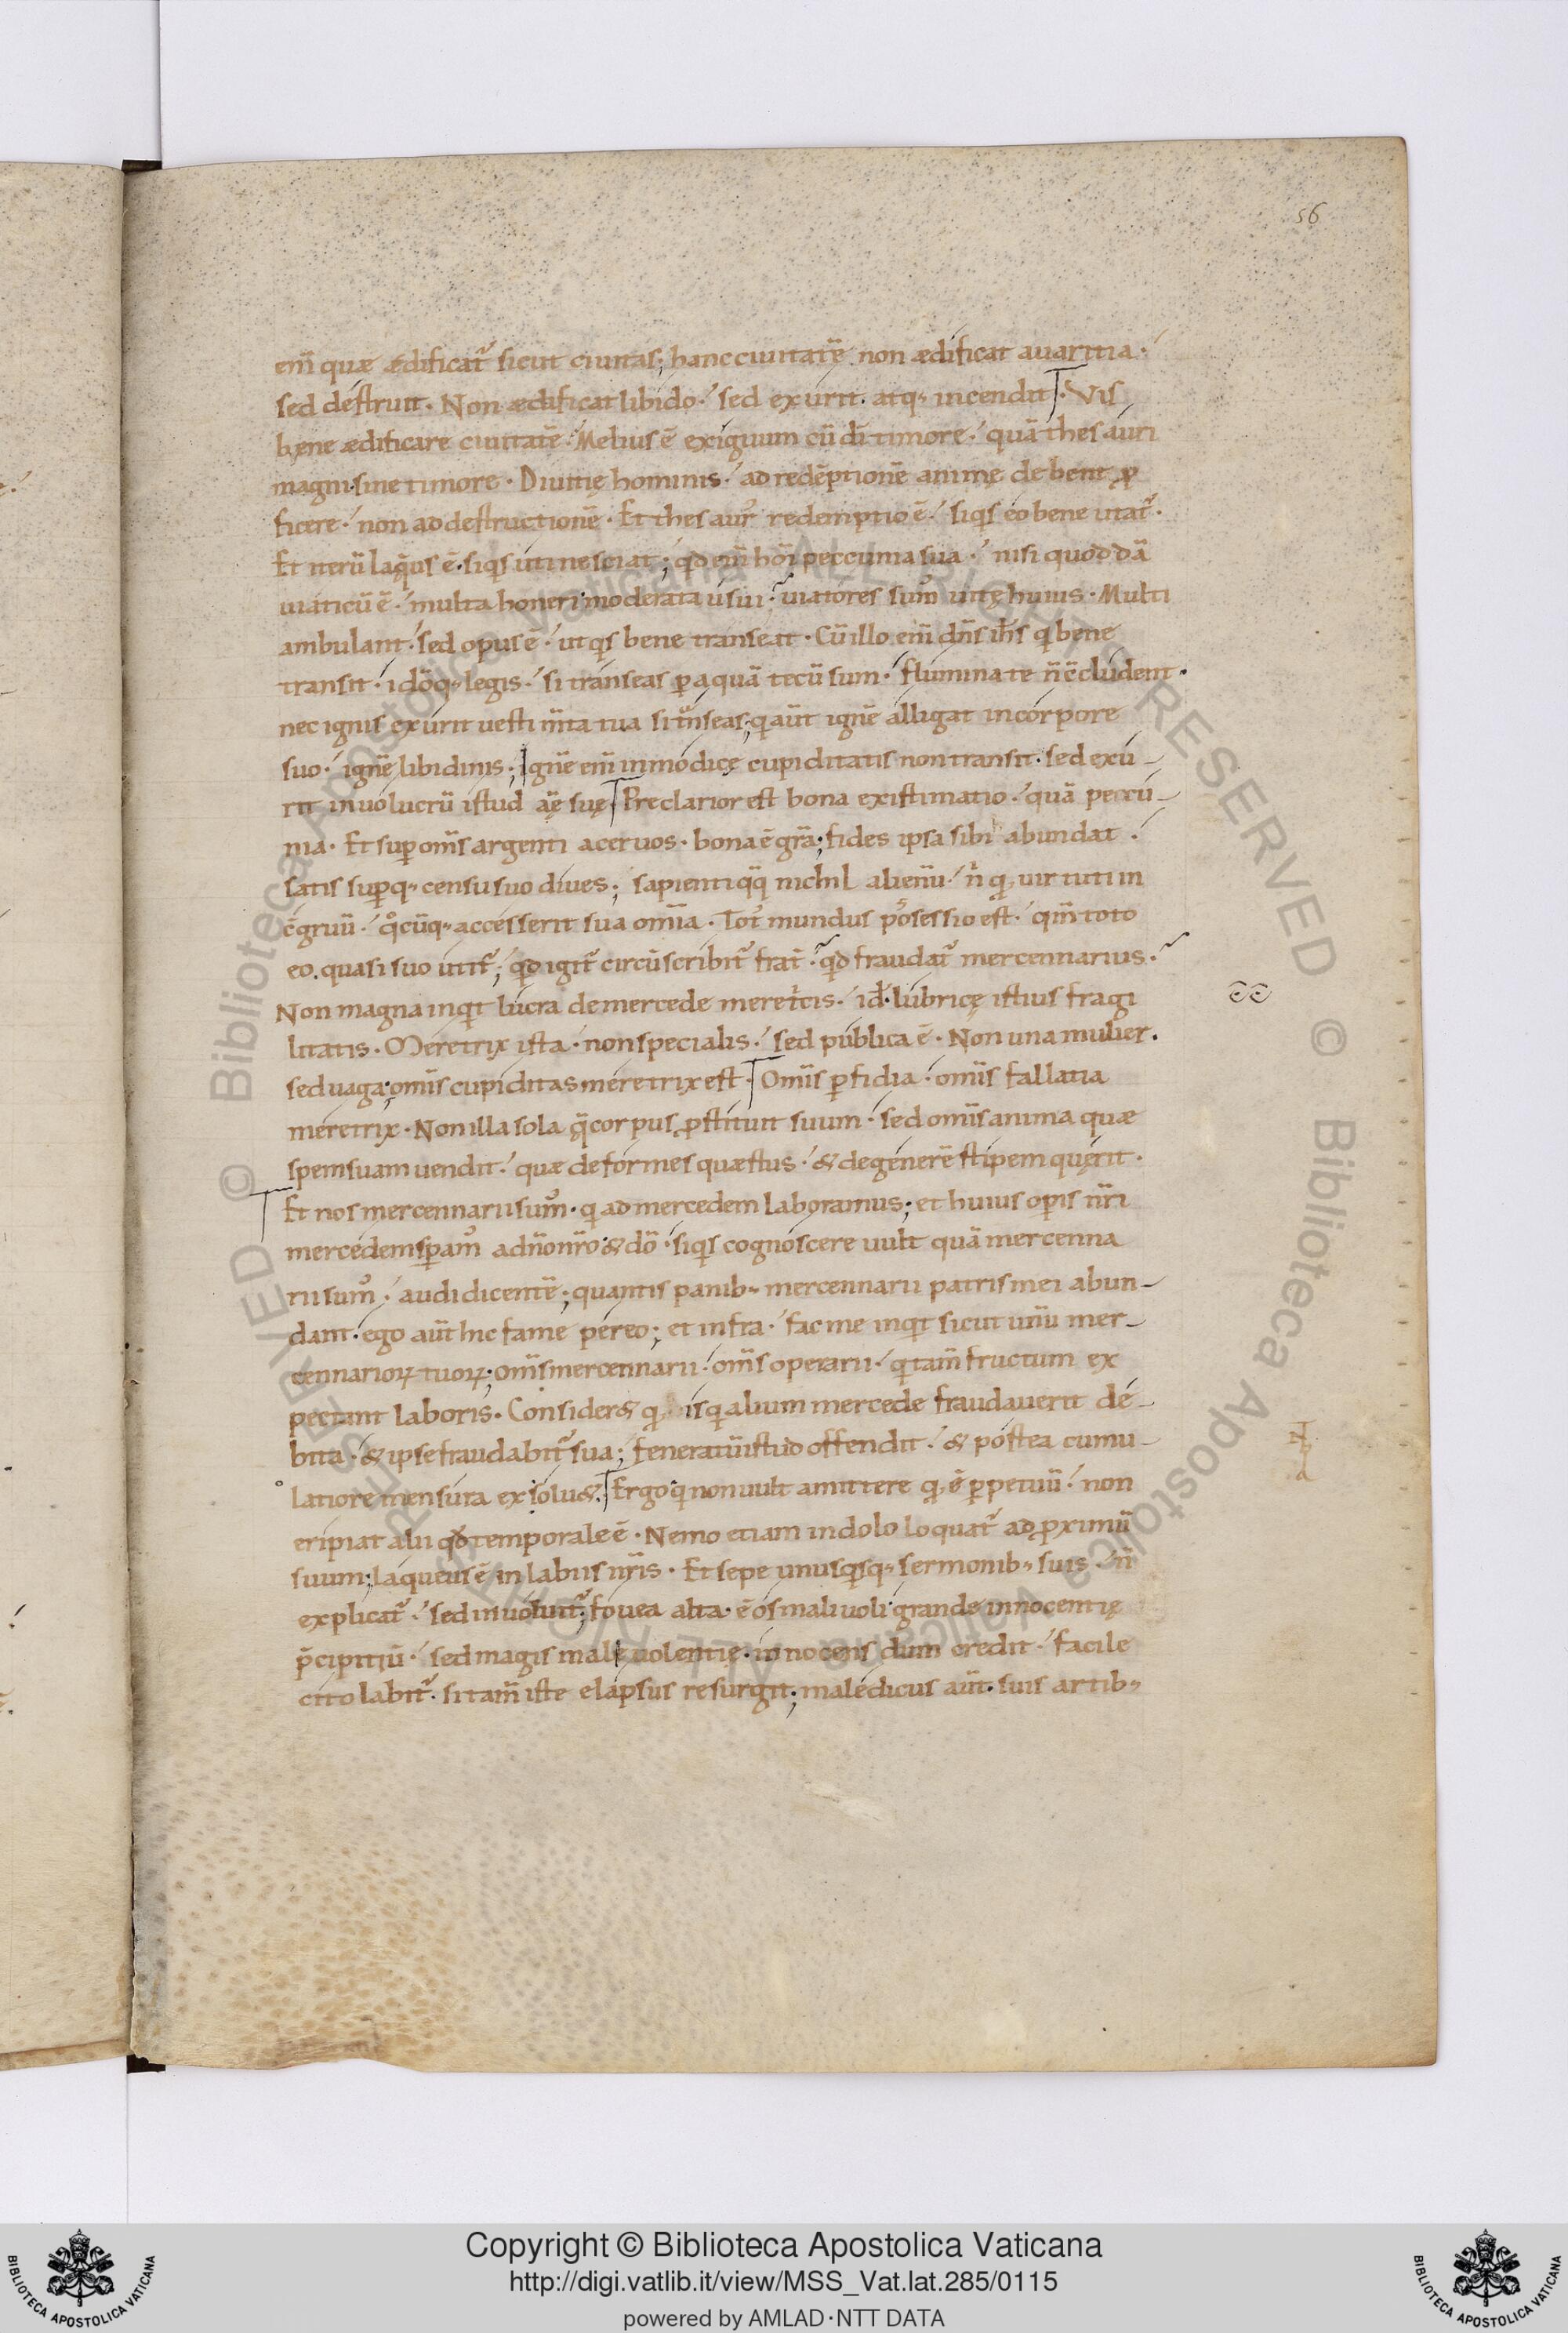 56
em̄ quæ ædificat᷑ sicut ciuitas; hanc ciuitatē non ædificat auaritia.
sed destruit. Non ædificat libido. sed exurit. atq; incendit. Vis
bene ædificare ciuitatē. Melius ē exiguum cū dī timore. quā thesauri
magni sine timore. Diuitię hominis. ad redēptionē animę debent ꝓ
ficere. non ad destructionē. Et thesaur᷒ redemptio ē. siqͥs eo bene utat᷑.
Et iterū laq̄us ē. siqͥs uti nesciat; qd em̄ hōi peccunia sua. nisi quoddā
uiaticū ē. multa honeri moderata usui. uiatores sum᷒ uitę huius. Multi
ambulant. sed opus ē. ut qͥs bene transeat. Cū illo em̄ dn̄s ih̄s qͥ bene
transit. idōq; legis. si transeas ꝑ aquā tecū sum. flumina te n̄ c̄cludent.
nec ignis exurit uestim̄ta tua si tͣnseas; qͥ aūt ignē alligat in corpore
suo. ignē libidinis; Ignē em̄ inmodicę cupiditatis non transit. sed exu-
rit inuolucrū istud aīę suę. Preclarior est bona existimatio. quā peccu-
nia. Et suꝑ om̄s argenti aceruos. bona ē grā; fides ipsa sibi abundat.
satis suꝑq; censu suo diues; sapienti qͦq̄ nichil alienū. n̄ qͦ uirtuti in
c̄gruū. qͦcūq; accesserit sua omīa. Tot᷒ mundus possessio est. qm̄ toto
eo. quasi suo utit᷑; qd igit᷑ circūscribit᷑ frat̄. qd fraudat᷑ mercennarius.
Non magna inqͥt lucra de mercede meret̄cis. id̄. lubricę istius fragi
litatis. Meretrix ista. non specialis. sed publica ē. Non una mulier.
sed uaga; omīs cupiditas meretrix est. Omīs ꝑfidia. omīs fallatia
meretrix. Non illa sola q̄ corpus ꝓstituit suum. sed omīs anima quæ
spem suam uendit. quæ deformes quæstus. & degenerē stipem quęrit.
Et nos mercennarii sum᷒. qͥ ad mercedem laboramus; et huius oꝑis nr̄i
mercedem sꝑam᷒ a dn̄o nr̄o & dō. siqͥs cognoscere uult quā mercenna
rii sum᷒. audi dicentē; quantis panib; mercennarii patris mei abun-
dant. ego aūt hic fame pereo; et infra. fac me inqͥt sicut unū mer-
cennarioꝝ tuoꝝ; om̄s mercennarii. om̄s operarii. qͥ tam̄ fructum ex
pectant laboris. Consider& qͥ is qͥ alium mercede fraudauerit de-
bita. & ipse fraudabit᷑ sua; feneratū istud offendit. & postea cumu-
latiore mensura exsolu&. Ergo qͥ non uult amittere qͦ ē ꝑpetuū. non
eripiat alii qd temporale ē. Nemo etiam in dolo loquat᷑ ad ꝓximū
suum; laqueus ē in labiis nr̄is. Et sepe unusqͥsq; sermonib; suis. n̄
explicat᷑. sed inuoluit᷑; fouea alta. ē os maliuoli grande innocentię
p̄cipitiū. sed magis maleuolentię. innocens dum credit. facile
cito labit᷑. si tam̄ iste elapsus resurgit; maledicus aūt. suis artib;
Copyright © Biblioteca Apostolica Vaticana
http://digi.vatlib.it/view/MSS_Vat.lat.285/0115
powered by AMLAD·NTT DATA
BIBLIOTECA APOSTOLICA VATICANA
BIBLIOTECA APOSTOLICA VATICANA